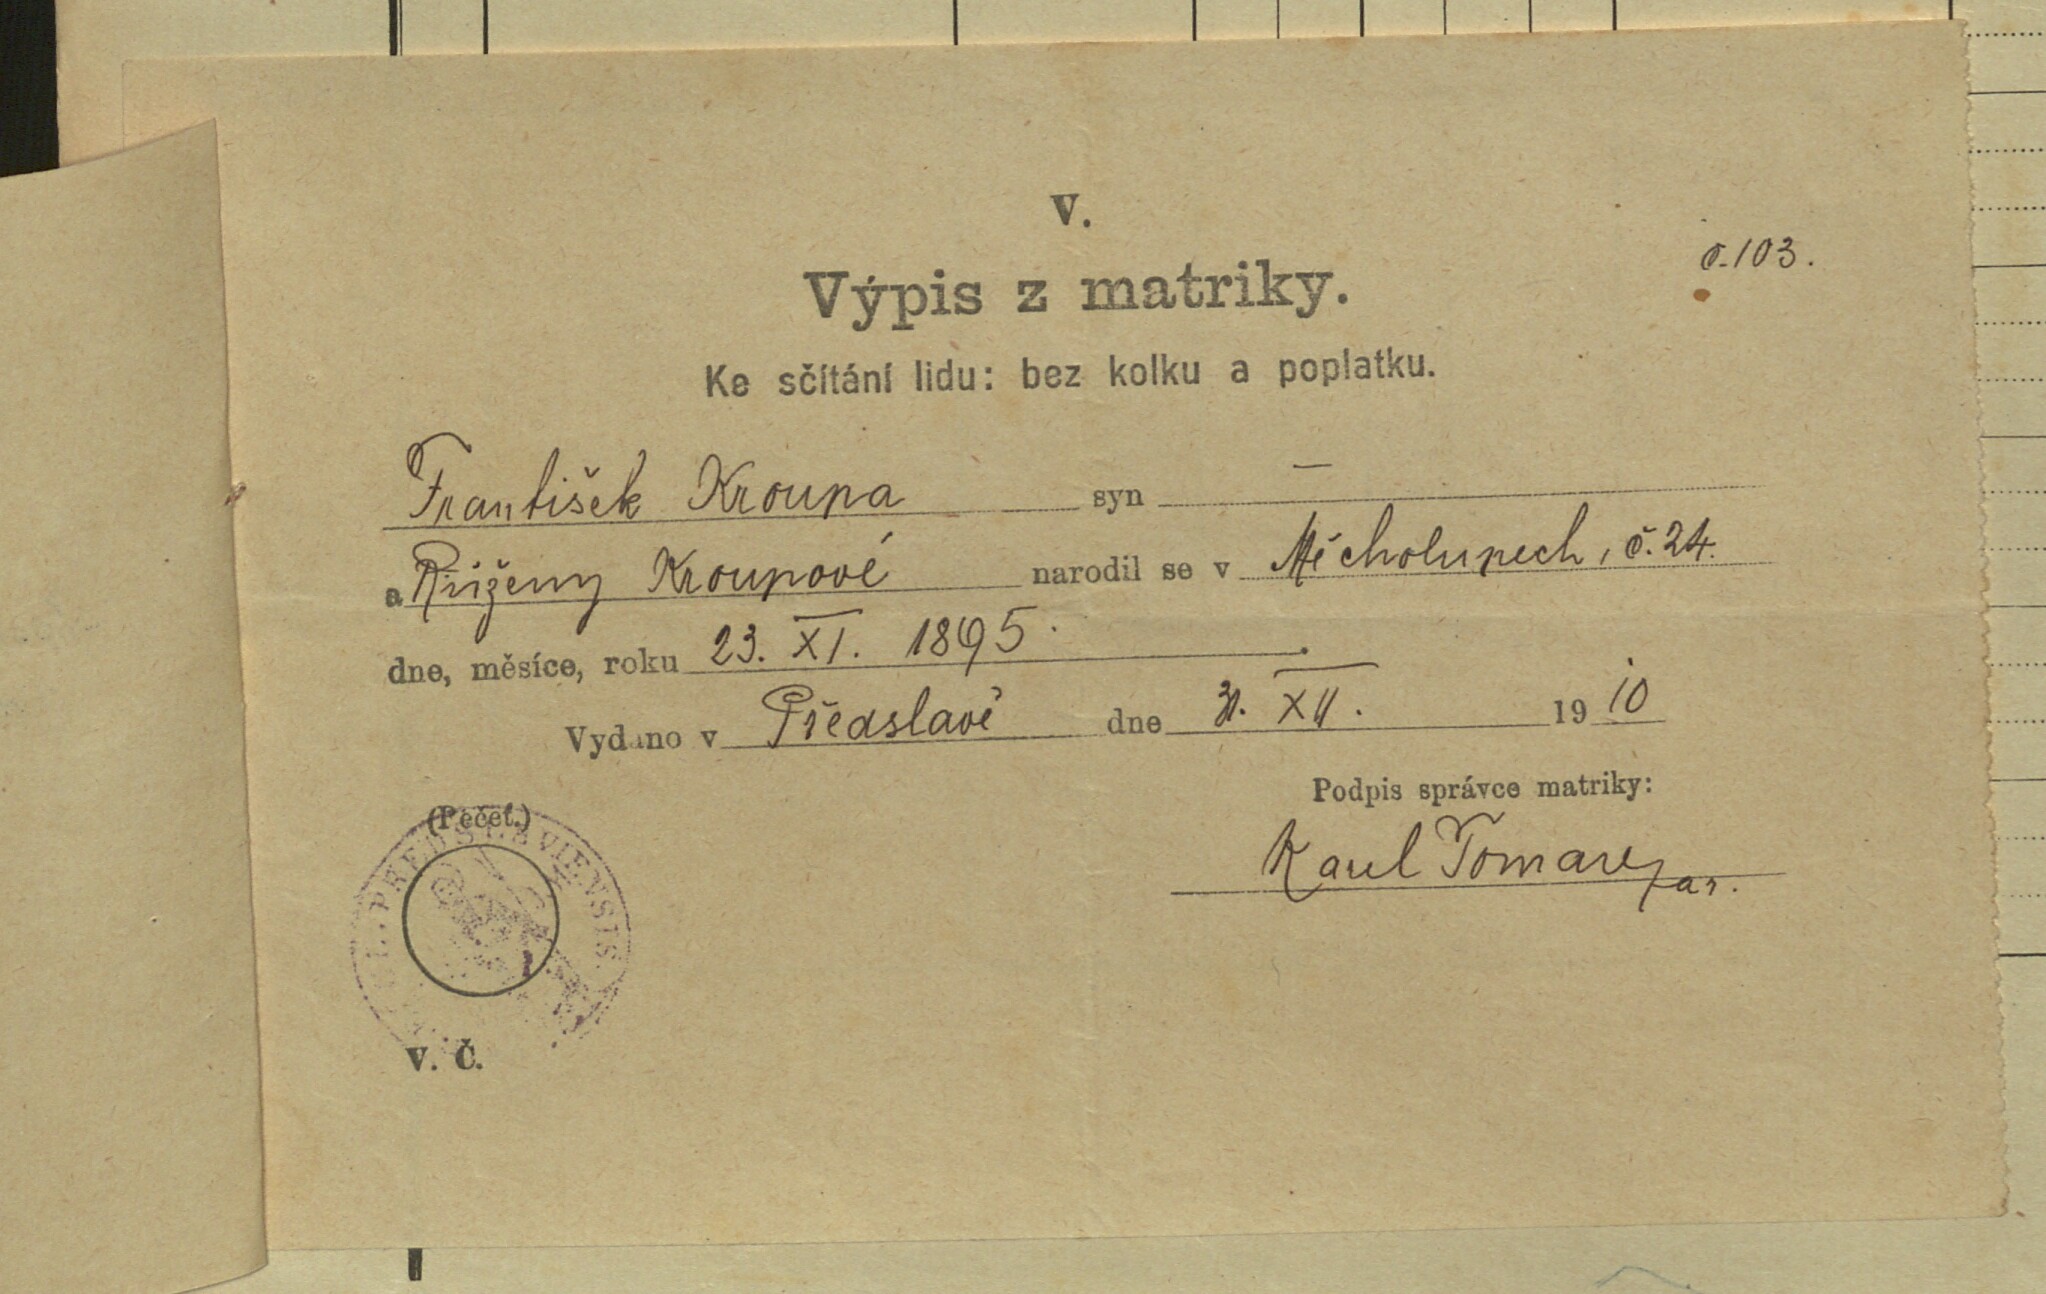 V.
č. 103.
Výpis z matriky.
Ke sčítání lidu: bez kolku a poplatku.
František Kroupa syn —
a Růženy Kroupové narodil se v Měcholupech, č. 24.
dne, měsíce, roku 23. XI. 1895.
Vydáno v Předslavě dne 31. XII. 1910
Podpis správce matriky:
(Pečeť.)
PREDSLAVIENSIS
Karel far.
V. Č.